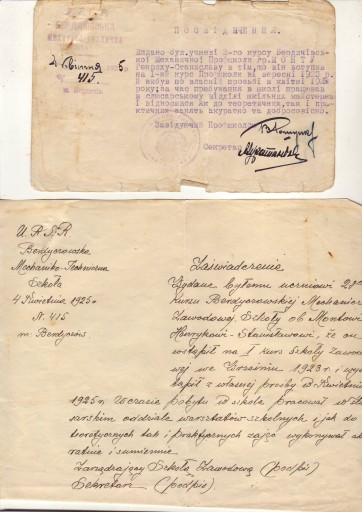 ПОСВІДЧЕННЯ.
Видано був.учневі 2-го курсу Бердичівсь-
кої Механичної Профшколи гр.МОНТУ
Генриху-Станиславу в тім,що він вступив
на 1-ий курс Профшколи ві вересні 1923 р.
й вибув по власній просьбі в квітні 1925
року;за час пребування в школі працював
в слюсарському відділі шкільних майстерень
і відносився як до теоретичних,так і пра-
ктичних занять акуратно та добросовісно.
Завідуючий Профшколою
Секретар
4 Квітня 5
415
м. Бердичів
U. R. S. R
Berdyczowska
Mechaniko-Techniczna
Szkoła
4 Kwietnia 1925 r
N. 415
m. Berdyczów
Zaświadczenie
Wydane byłemu uczniowi 2go
kursu Berdyczowskiej Mechanicz
Zawodowej Szkoły ob Montowi
Henrykowi-Stanisławowi, że on
wstąpił na I kurs Szkoły Zawo
wej we Wrześniu 1923 r i wy
tąpił z własnej prośby w Kwietniu
1925 r. W czasie pobytu w szkole pracował w ślu
sarskim oddziale warsztatów szkolnych i jak do
teoretycznych tak i praktycznych zajęć wykonywał ak
ratnie i sumiennie.
Zarządzający Szkołą Zawodową (podpis)
Sekretarz (podpis)